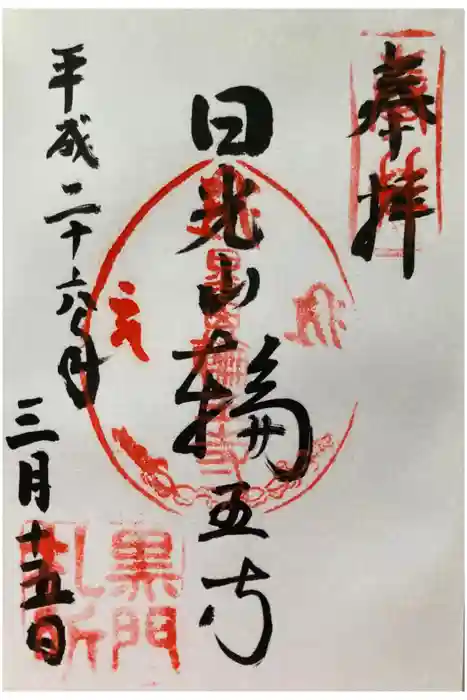 奉拝
日光山輪王寺
平成二十六年
三月十五日
黒門
札所